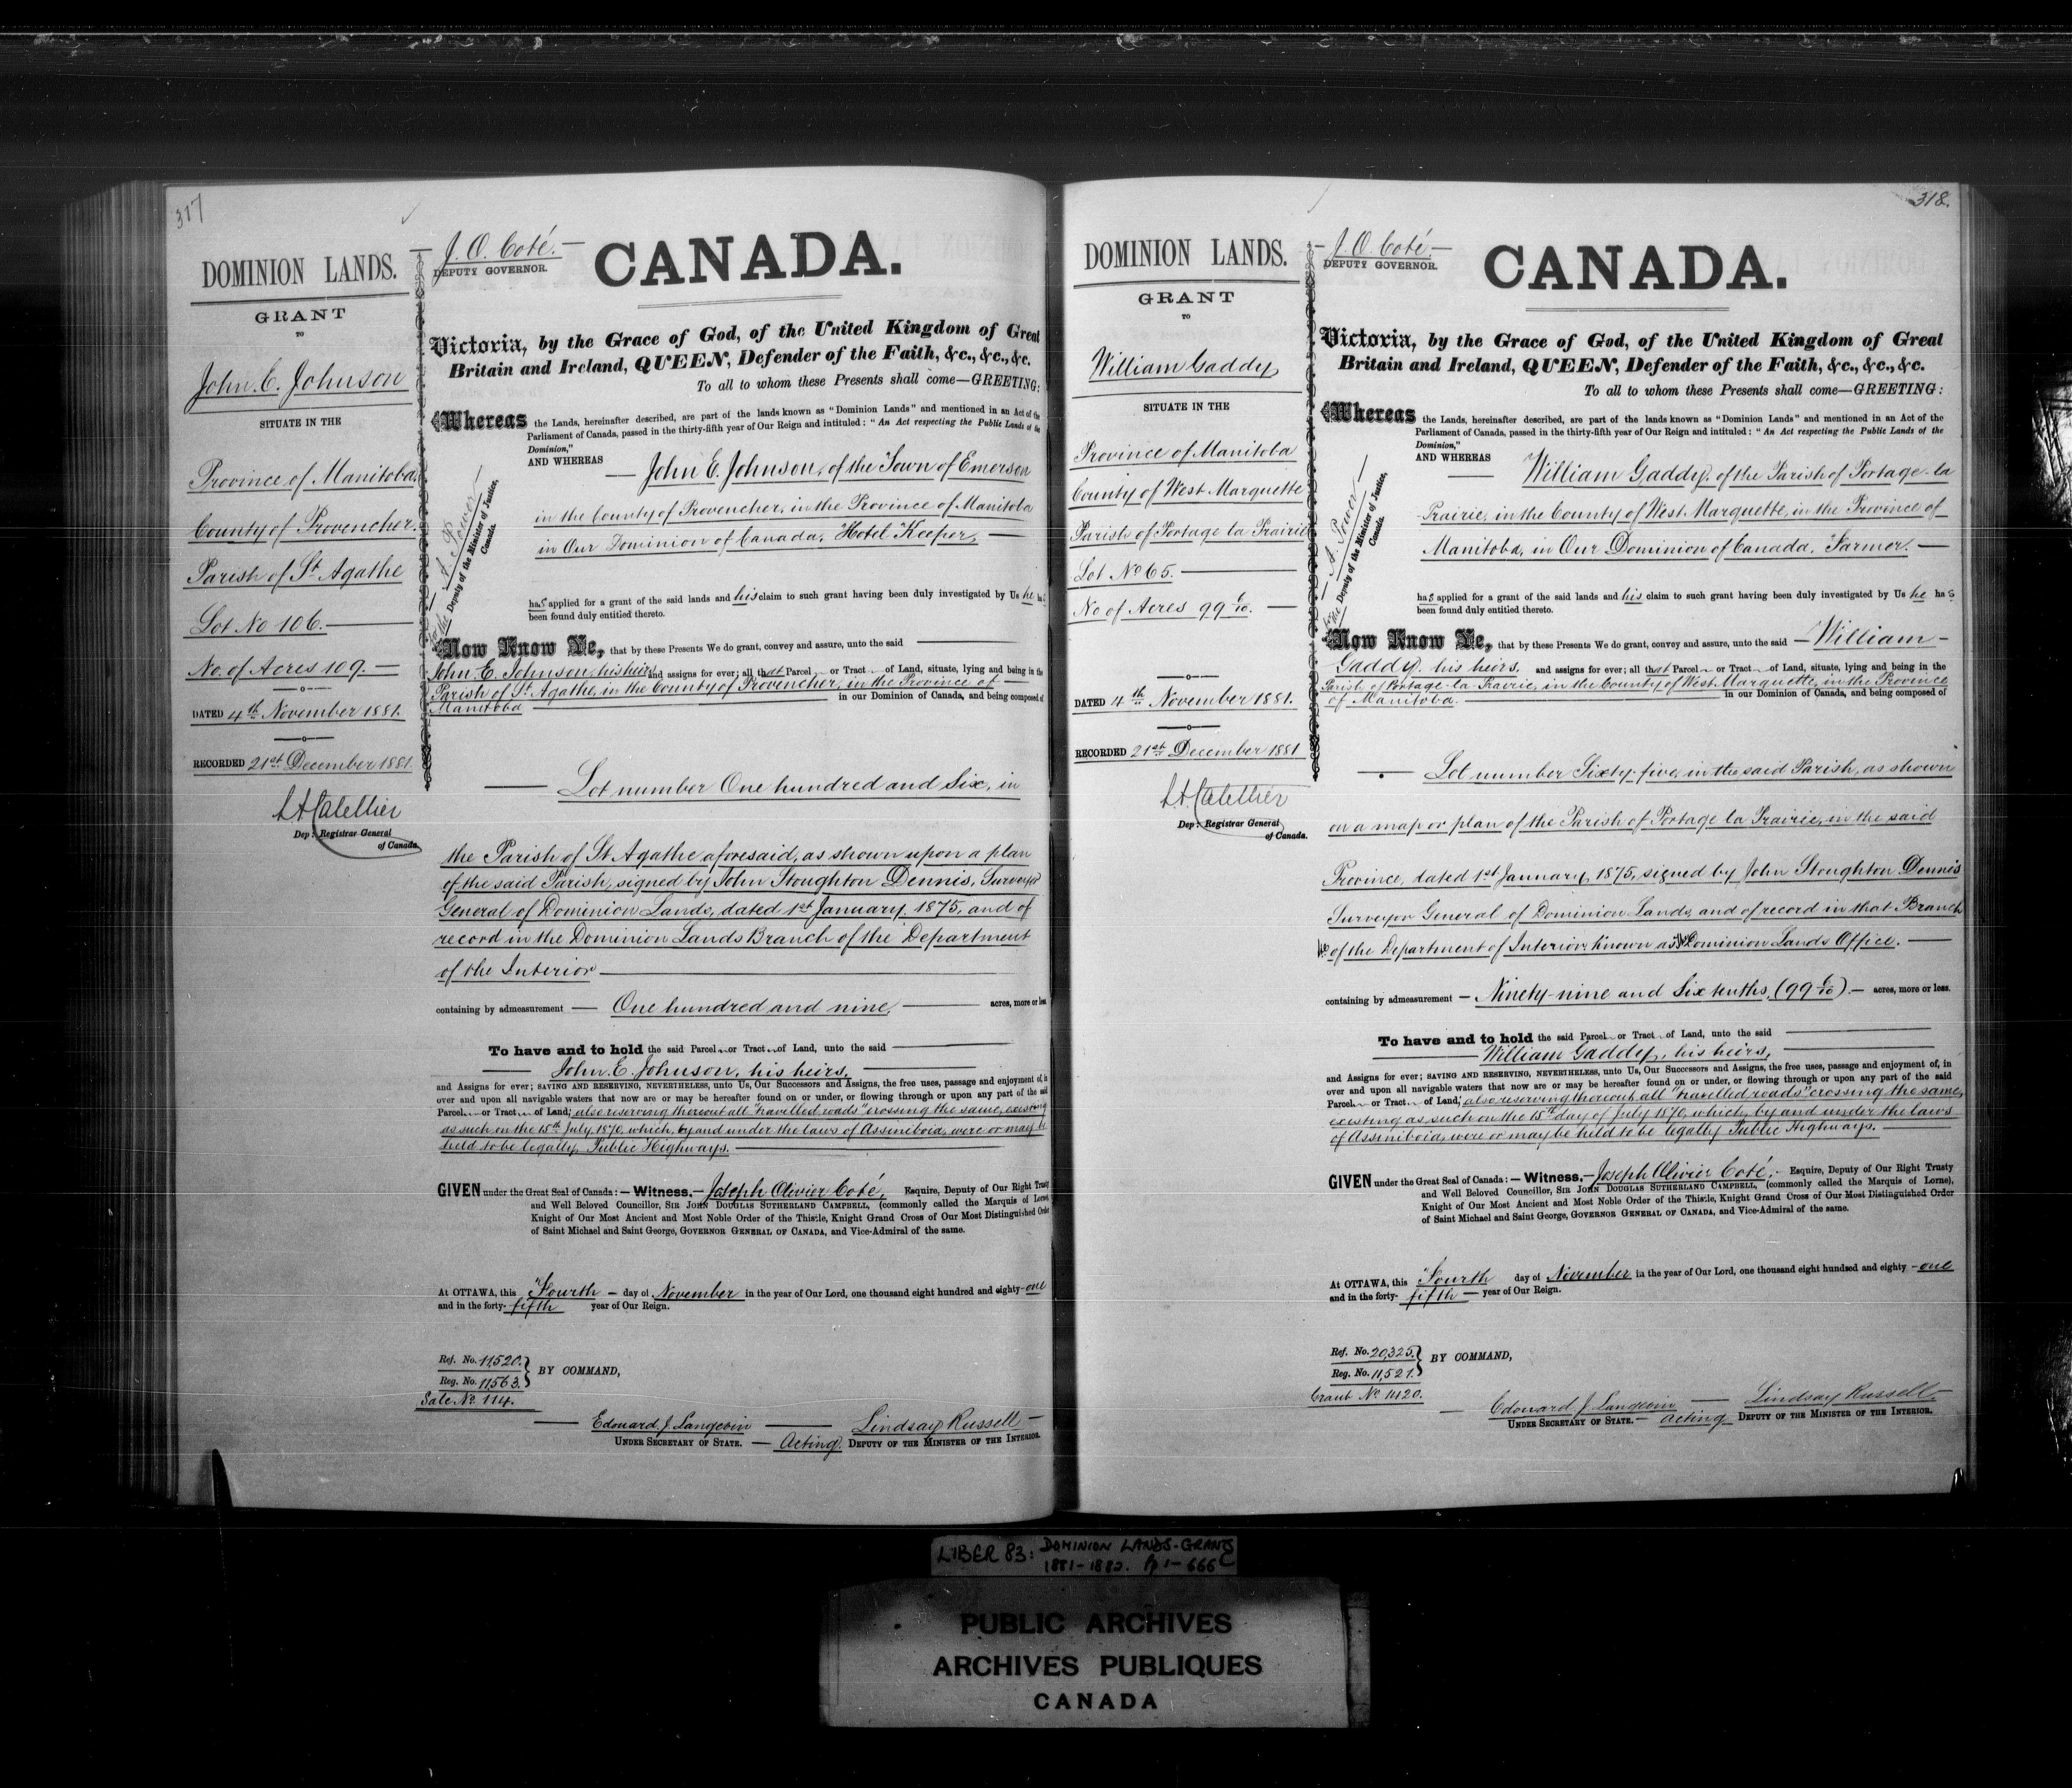 317
DOMINION LANDS.
GRANT
TO
John E. Johnson
SITUATE IN THE
Province of Manitoba
County of Provencher.
Parish of St. Agathe
Lot No 106.
No. of Acres 109.
DATED 4th November 1881.
RECORDED 21st December 1881.
Dep: Registrar General
of Canada.
J. O. Coté.
DEPUTY GOVERNOR.
CANADA.
Victoria, by the Grace of God, of the United Kingdom of Great
Britain and Ireland, QUEEN, Defender of the Faith, &c., &c., &c.
To all to whom these Presents shall come—GREETING:
A. Power
for the Deputy of the Minister of Justice,
Canada.
Whereas the Lands, hereinafter described, are part of the lands known as "Dominion Lands" and mentioned in an Act of the
Parliament of Canada, passed in the thirty-fifth year of Our Reign and intituled: "An Act respecting the Public Lands of the
Dominion,"
AND WHEREAS John E. Johnson, of the Town of Emerson
in the County of Provencher, in the Province of Manitoba
in Our Dominion of Canada, Hotel Keeper,
has applied for a grant of the said lands and his claim to such grant having been duly investigated by Us he has
been found duly entitled thereto.
Now Know Ye, that by these Presents We do grant, convey and assure, unto the said
John E. Johnson, his heirs and assigns for ever; all that Parcel or Tract of Land, situate, lying and being in the
Parish of St. Agathe, in the County of Provencher, in the Province of
Manitoba in our Dominion of Canada, and being composed of
Lot number One hundred and Six, in
the Parish of St Agathe aforesaid, as shown upon a plan
of the said Parish, signed by John Stoughton Dennis, Surveyor
General of Dominion Lands, dated 1st January, 1875, and of
record in the Dominion Lands Branch of the Department
of the Interior
containing by admeasurement — One hundred and nine, acres, more or less.
To have and to hold the said Parcel or Tract of Land, unto the said
John E. Johnson, his heirs,
and Assigns for ever; SAVING AND RESERVING, NEVERTHELESS, unto Us, Our Successors and Assigns, the free uses, passage and enjoyment of, in
over and upon all navigable waters that now are or may be hereafter found on or under, or flowing through or upon any part of the said
Parcel or Tract of Land; also reserving thereout all "travelled roads" crossing the same, existing
as such on the 15th July, 1870, which, by and under the laws of Assiniboia, were or may be
held to be legally, Public Highways.
GIVEN under the Great Seal of Canada:—Witness.—Joseph Olivier Coté, Esquire, Deputy of Our Right Trusty
and Well Beloved Councillor, SIR JOHN DOUGLAS SUTHERLAND CAMPBELL, (commonly called the Marquis of Lorne),
Knight of Our Most Ancient and Most Noble Order of the Thistle, Knight Grand Cross of Our Most Distinguished Order
of Saint Michael and Saint George, GOVERNOR GENERAL OF CANADA, and Vice-Admiral of the same.
At OTTAWA, this Fourth — day of November in the year of Our Lord, one thousand eight hundred and eighty-one
and in the forty-fifth year of Our Reign.
Ref. No. 11,520.
Reg. No. 11,563.
BY COMMAND,
Sale No. 114.
Edouard J. Langevin Lindsay Russell
UNDER SECRETARY OF STATE. — Acting DEPUTY OF THE MINISTER OF THE INTERIOR.
318.
DOMINION LANDS.
GRANT
TO
William Gaddy
SITUATE IN THE
Province of Manitoba
County of West Marquette
Parish of Portage la Prairie
Lot No 65.
No of Acres 99 6/10.
DATED 4th November 1881.
RECORDED 21st December 1881
Dep: Registrar General
of Canada.
J. O. Coté
DEPUTY GOVERNOR.
CANADA.
Victoria, by the Grace of God, of the United Kingdom of Great
Britain and Ireland, QUEEN, Defender of the Faith, &c., &c., &c.
To all to whom these Presents shall come—GREETING:
A. Power
for the Deputy of the Minister of Justice,
Canada.
Whereas the Lands, hereinafter described, are part of the lands known as "Dominion Lands" and mentioned in an Act of the
Parliament of Canada, passed in the thirty-fifth year of Our Reign and intituled: "An Act respecting the Public Lands of the
Dominion,"
AND WHEREAS William Gaddy, of the Parish of Portage-la
Prairie, in the County of West Marquette, in the Province of
Manitoba, in Our Dominion of Canada, Farmer.
has applied for a grant of the said lands and his claim to such grant having been duly investigated by Us he has
been found duly entitled thereto.
Now Know Ye, that by these Presents We do grant, convey and assure, unto the said — William —
Gaddy, his heirs, and assigns for ever; all that Parcel or Tract of Land, situate, lying and being in the
Parish of Portage-la-Prairie, in the County of West Marquette, in the Province
of Manitoba. in our Dominion of Canada, and being composed of
Lot number Sixty-five, in the said Parish, as shown
on a map or plan of the Parish of Portage la Prairie, in the said
Province, dated 1st January, 1875, signed by John Stoughton Dennis
Surveyor General of Dominion Lands, and of record in that Branch
of the Department of Interior, known as the Dominion Lands Office.
containing by admeasurement — Ninety-nine and Six tenths, (99 6/10) — acres, more or less.
To have and to hold the said Parcel or Tract of Land, unto the said
William Gaddy, his heirs,
and Assigns for ever; SAVING AND RESERVING, NEVERTHELESS, unto Us, Our Successors and Assigns, the free uses, passage and enjoyment of, in
over and upon all navigable waters that now are or may be hereafter found on or under, or flowing through or upon any part of the said
Parcel or Tract of Land; also reserving thereout all "travelled roads" crossing the same,
existing as such on the 15th day of July 1870, which, by and under the laws
of Assiniboia, were or may be held to be legally Public Highways.
GIVEN under the Great Seal of Canada:—Witness.—Joseph Olivier Coté, — Esquire, Deputy of Our Right Trusty
and Well Beloved Councillor, SIR JOHN DOUGLAS SUTHERLAND CAMPBELL, (commonly called the Marquis of Lorne),
Knight of Our Most Ancient and Most Noble Order of the Thistle, Knight Grand Cross of Our Most Distinguished Order
of Saint Michael and Saint George, GOVERNOR GENERAL OF CANADA, and Vice-Admiral of the same.
At OTTAWA, this Fourth day of November in the year of Our Lord, one thousand eight hundred and eighty-one
and in the forty-fifth — year of Our Reign.
Ref. No. 20,325.
Reg. No. 11,521.
BY COMMAND,
Grant No. 11120.
Edouard J. Langevin Lindsay Russell
UNDER SECRETARY OF STATE. — acting DEPUTY OF THE MINISTER OF THE INTERIOR.
LIBER 83: DOMINION LANDS-GRANTS
1881-1882. Pp 1-666
PUBLIC ARCHIVES
ARCHIVES PUBLIQUES
CANADA